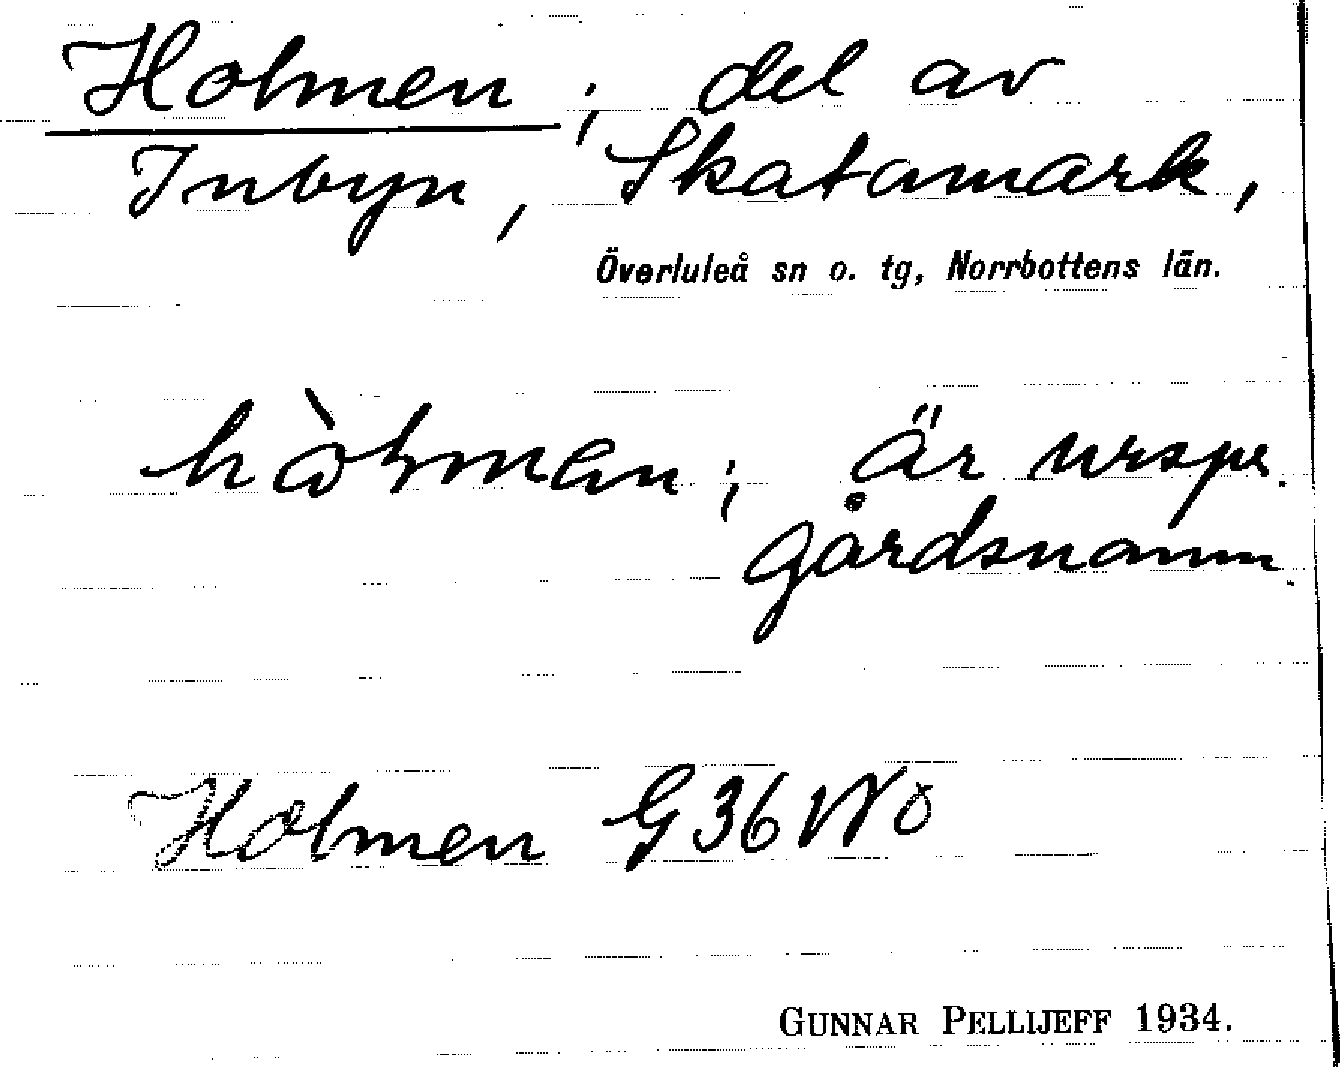 Holmen ; del av
Inbyn, Skatamark,
Överluleå sn o. tg, Norrbottens län.
hòłman ; är urspr.
gårdsnamn.
Holmen G 36 NV ö
GUNNAR PELLIJEFF 1934.